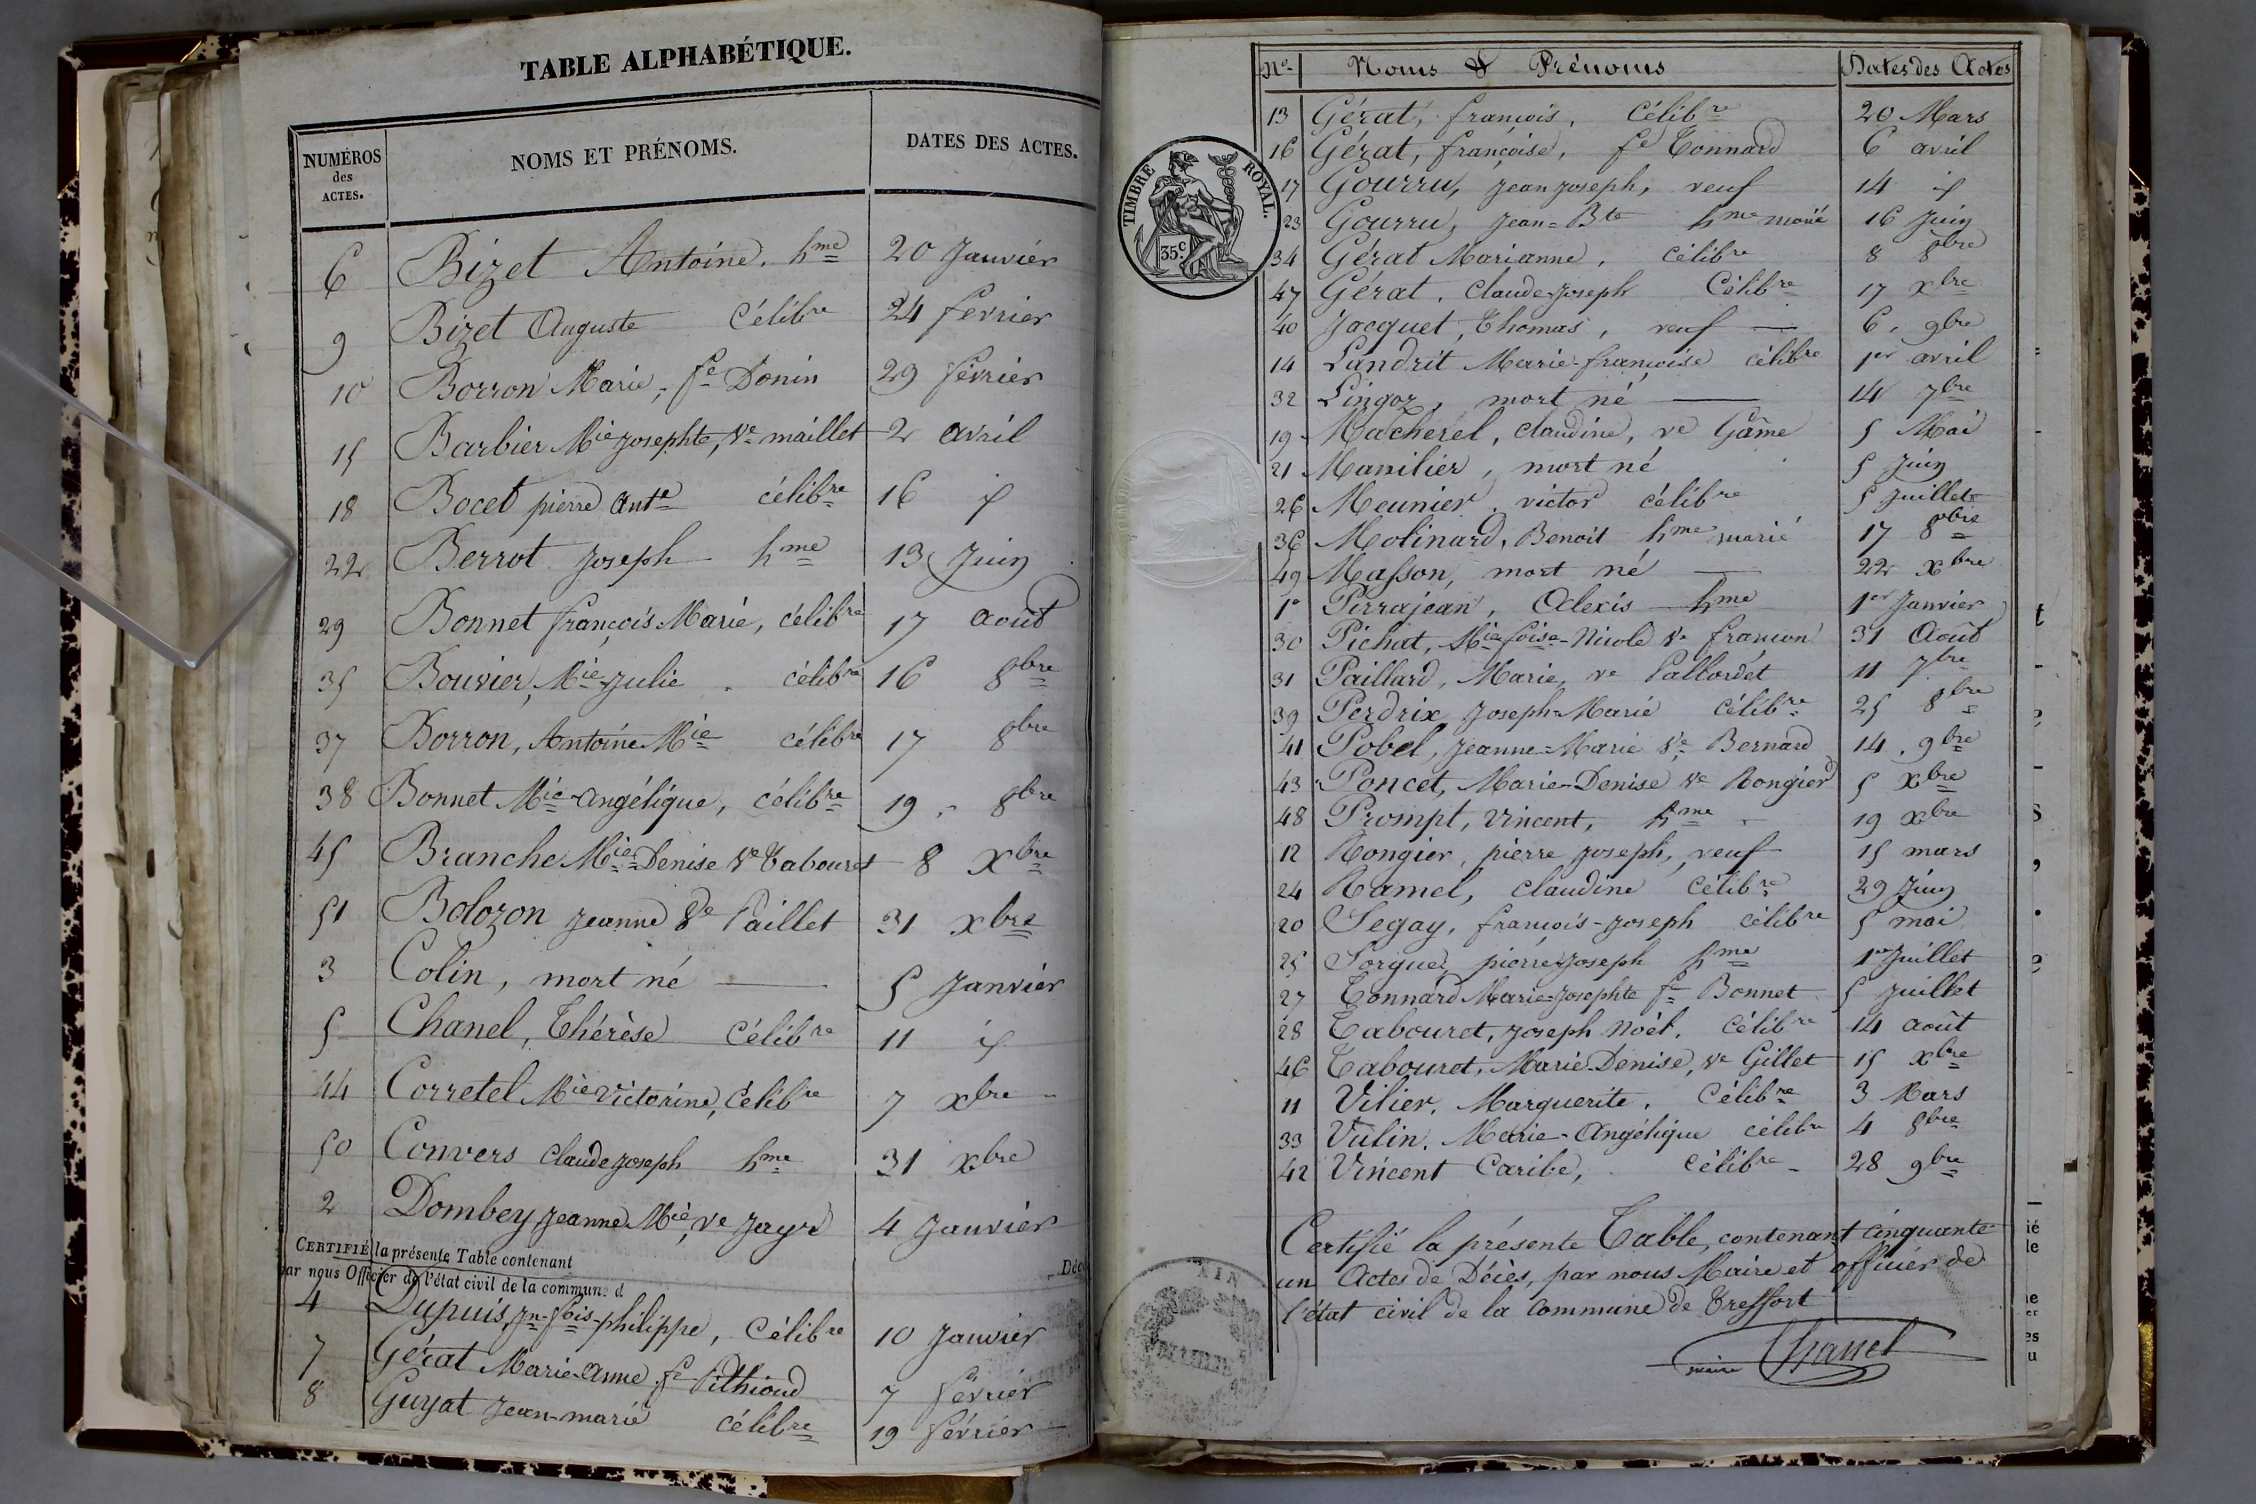 TABLE ALPHABÉTIQUE.
NUMÉROS des ACTES. NOMS ET PRÉNOMS. DATES DES ACTES.
6 Bizet Antoine. hme 20 Janvier
9 Bizet Auguste Célibre 24 février
10 Borron Marie, fe Donin 29 février
15 Barbier Mie josephte, Ve maillet 2 avril
18 Bocet pierre Ante célibre 16 if
22 Berrot Joseph hme 13 Juin
29 Bonnet françois Marie, célibre 17 août
35 Bouvier, Mie-Julie célibre 16 8bre
37 Borron, Antoine Mie célibre 17 8bre
38 Bonnet Mie-angélique, célibre 19 8bre
45 Branche Mie-Denise Ve Tabouret 8 Xbre
51 Bolozon jeanne Ve Paillet 31 xbre
3 Colin, mort né 5 Janvier
5 Chanel, Thérèse Célibre 11 if
44 Corretel Mie victorine, Célibre 7 xbre
50 Convers claude joseph hme 31 xbre
2 Dombey, jeanne Mie, ve jayr 4 Janvier
CERTIFIÉ la présente Table contenant Déc
ar nous Officier de l'état civil de la commune d
4 Dupuis, jn-fois-philippe, Célibre 10 Janvier
7 Gérat Marie-anne fe Pithioud 7 février
8 Guyat jean-marie célibre 19 février
No. Noms & Prénoms Dates des Actes
TIMBRE ROYAL.
35c
13 Gérat, françois, Célibre 20 Mars
16 Gérat, françoise, fe Tonnard 6 avril
17 Gourru, jean joseph, veuf 14 if
23 Gourru, jean=Bte hme marié 16 juin
34 Gérat Marianne, célibre 8 8bre
47 Gérat, Claude-Joseph Célibre 17 xbre
40 Jacquet, Thomas, veuf 6. 9bre
14 Landrit Marie-françoise célibre 1er avril
32 Lingoz, mort né 14 7bre
19 Macherel, claudine, ve Game 5 Mai
21 Manilier, mort né 5 Juin
26 Meunier, victor célibre 5 Juillet
36 Molinard, Benoit hme marié 17 8bre
49 Masson, mort né 22 xbre
1er Perrajean, Alexis hme 1er Janvier
30 Pichat, Mie foise-Nicole Ve françon 31 Août
31 Paillard, Marie, ve Pallordet 11 7bre
39 Perdrix Joseph-Marie célibre 25 8bre
41 Pobel, jeanne=Marie Ve Bernard 14. 9bre
43 Poncet, Marie-Denise ve Rongier 5 Xbre
48 Prompt, Vincent, hme 19 xbre
12 Rongier, pierre joseph, veuf 15 mars
24 Ramel, claudine célibre 29 Juin
20 Segay, françois-joseph célibre 5 mai
25 Sorgue, pierre joseph hme 1er Juillet
27 Tonnard Marie=josephte fe Bonnet 5 Juillet
28 Tabouret, joseph Noël, célibre 14 août
46 Tabouret, Marie-Denise, ve Gillet 15 xbre
11 Vilier, Marguerite, Célibre 3 Mars
33 Vulin, Marie-Angélique célibre 4 8bre
42 Vincent Caribe, célibre 28 9bre
Certifié la présente Table, contenant cinquante
un Actes de Décès, par nous Maire et officier de
l'état civil de la commune de Treffort
maire Chanel